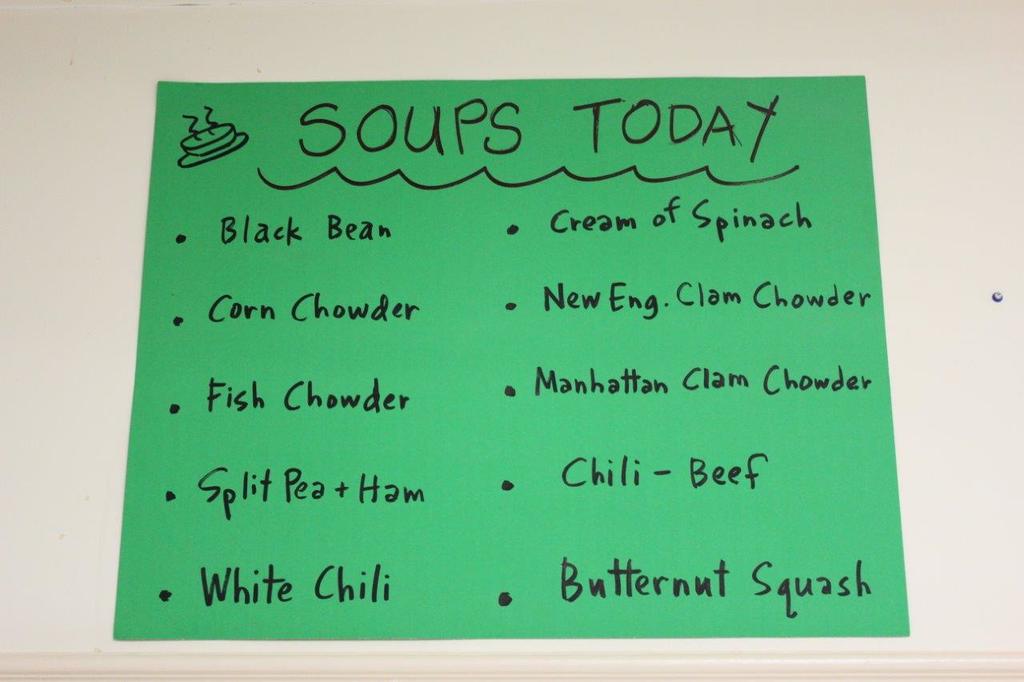 SOUPS TODAY
• Black Bean
• Corn Chowder
• Fish Chowder
• Split Pea + Ham
• White Chili
• Cream of Spinach
• New Eng. Clam Chowder
• Manhattan Clam Chowder
• Chili - Beef
• Butternut Squash